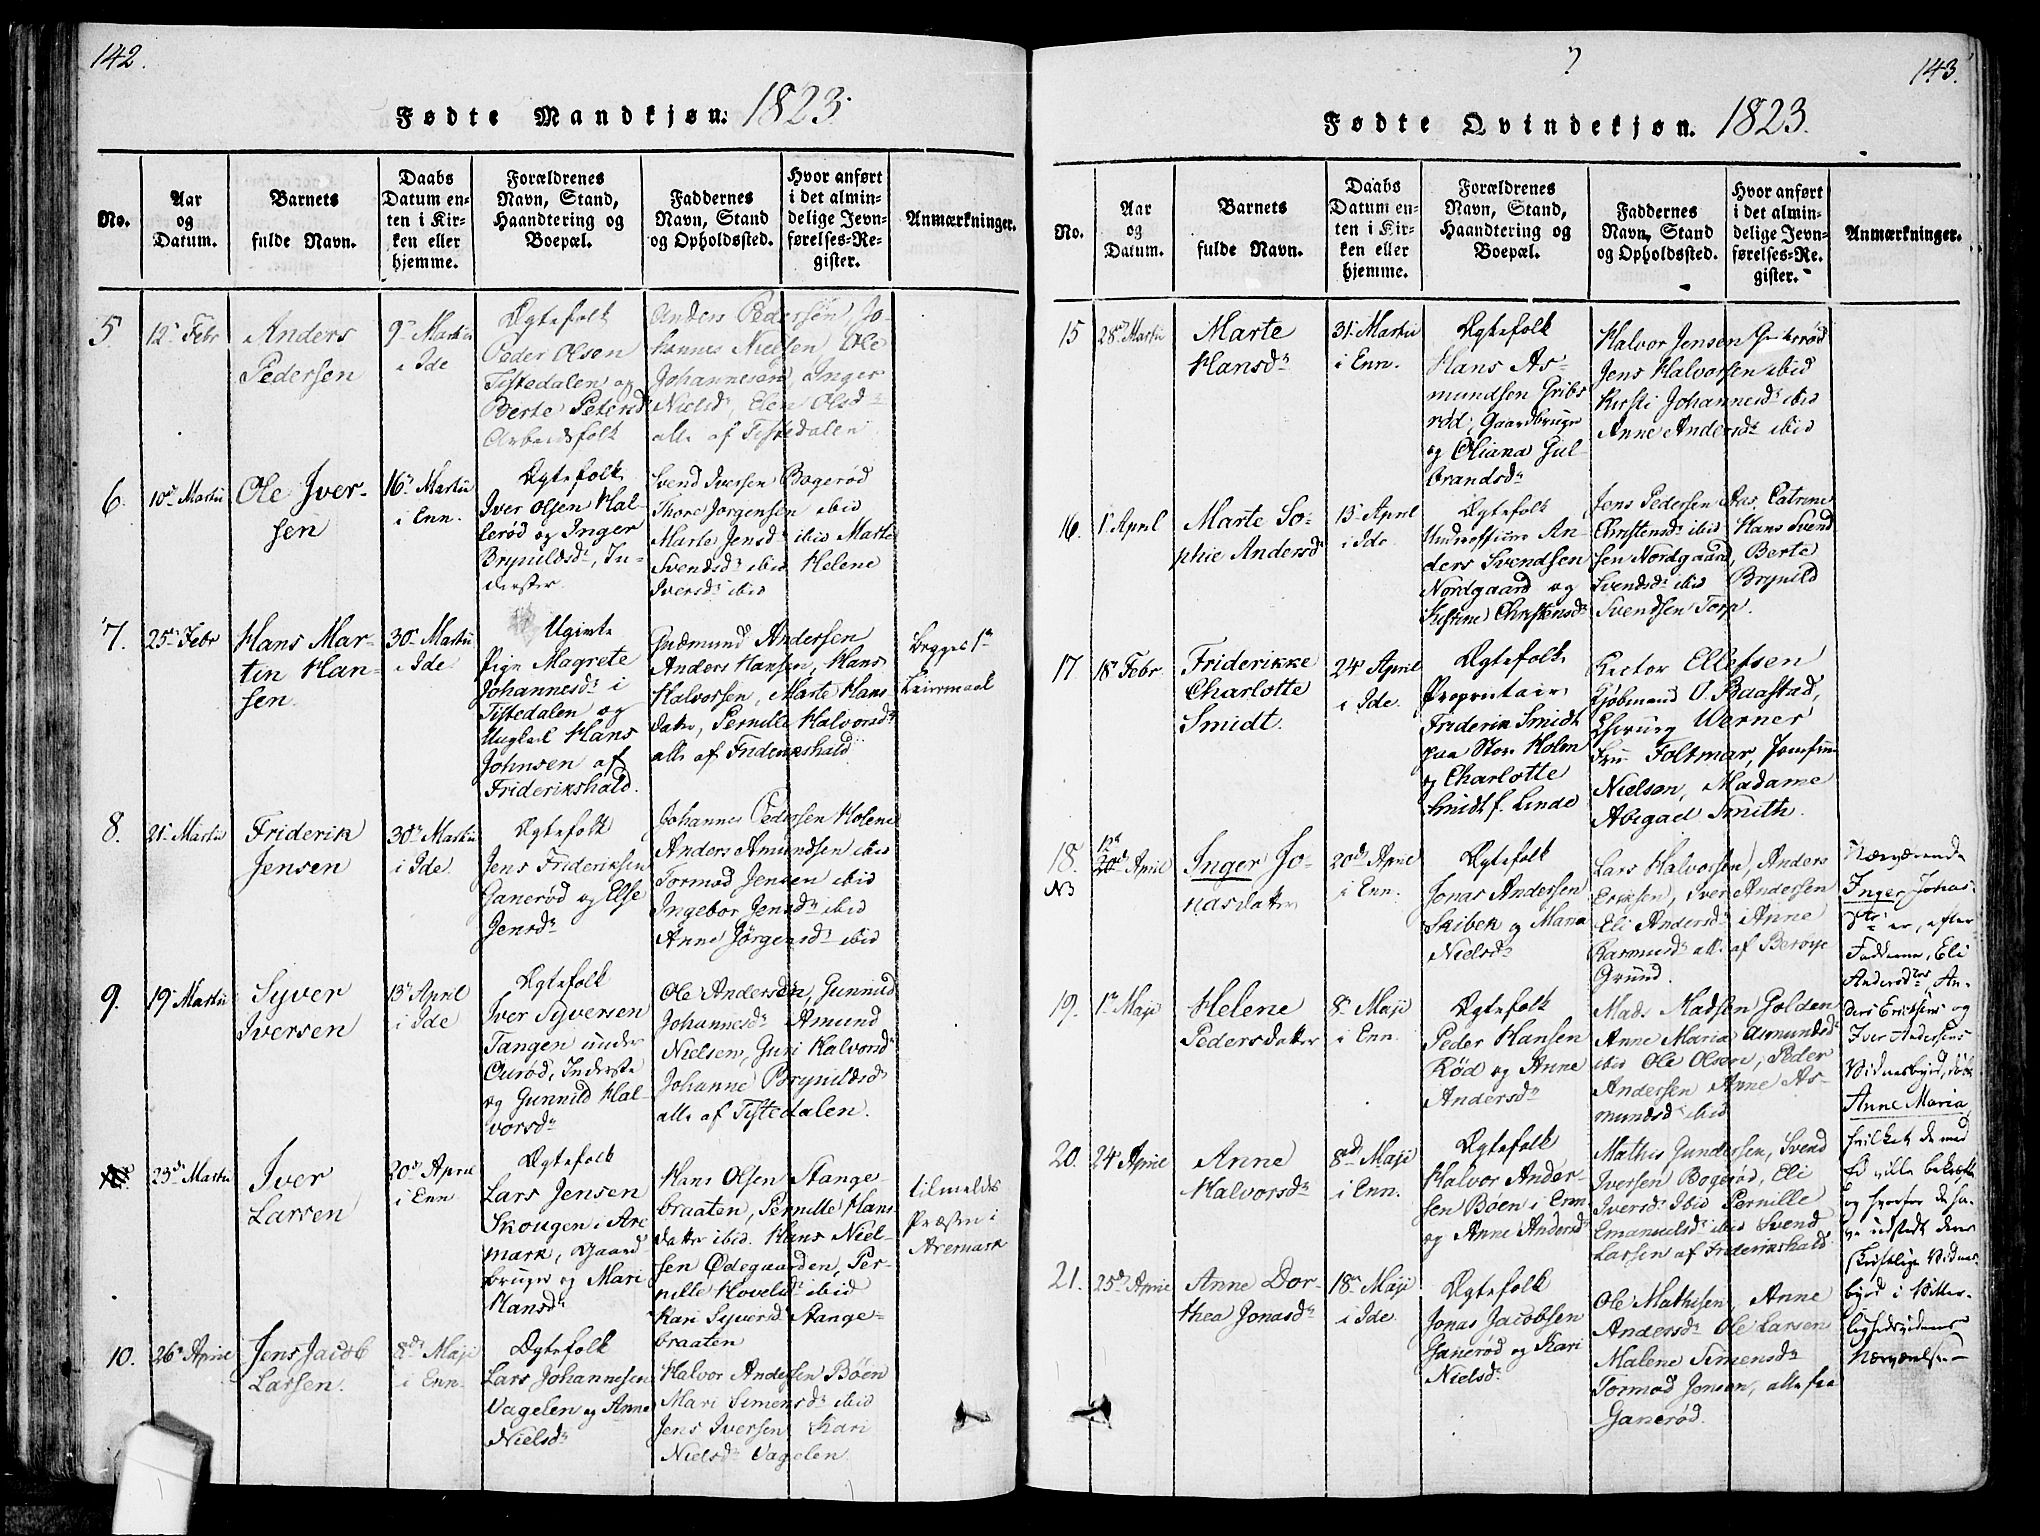 142.
Fødte Mandkjøn. 1823.
No.
Aar
og
Datum.
Barnets
fulde Navn.
Daabs
Datum en-
ten i Kir-
ken eller
hjemme.
Forældrenes
Navn, Stand,
Haandtering og
Boepæl.
Faddernes
Navn, Stand
og Opholdssted.
Hvor anført
i det almin-
delige Jevn-
førelses-Re-
gister.
Anmærkninger.
5
12 Febr
Anders
Pedersen
9 Martii
i Ide
Ægtefolk
Peder Olsen
Tistedalen og
Berte Petersd
Arbeidsfolk
Anders Pedersen, Jo-
hannes Nielsen, Ole
Johannesen, Inger
Nielsd, Elen Olsd
alle af Tistedalen
6.
10 Martii
Ole Iver-
sen
16 Martii
i Enn.
Ægtefolk
Iver Olsen Hal-
lerød og Inger
Brynildsd, In-
derster.
Svend Iversen Bogerød
Thore Jørgensen ibid
Marte Jensd ibid Marte
Svendsd ibid Helene
Iversd ibid
7.
25 Febr
Hans Mar-
tin Han-
sen.
30 Martii
i Ide
Ugivte
Pige Magrete
Johannesd i
Tistedalen og
Ungkarl Hans
Johnsen af
Friderikshald.
Gudmund Andersen
Anders Hansen, Hans
Halvorsen, Marte Hans
datter, Pernille Halvorsd
alle af Friderikshald
begges 1
Leiermaal
8.
21 Martii
Friderik
Jensen
30 Martii
i Ide.
Ægtefolk
Jens Frideriksen
Ganerød og Else
Jensd
Johannes Pedersen Holene
Anders Amundsen ibid
Tormod Jensen ibid
Ingebor Jensd ibid
Anne Jørgensd ibid
9.
19 Martii
Syver
Iversen
13 April
i Ide
Ægtefolk
Iver Syversen
Tangen under
Ourød, Inderste
og Gunnild Hal-
vorsd
Ole Andersen, Gunnild
Johannesd Amund
Nielsen, Guri Halvorsd
Johanne Brynildsd
alle af Tistedalen.
23 Martii
Iver
Larsen
20 April
i Enn
Ægtefolk
Lars Jensen
Skougen i Are
mark, Gaard
bruger og Mari
Hansd
Hans Olsen Stange-
braaten, Pernille Hans
datter ibid. Hans Niel-
sen Ødegaarden, Per-
nille Hovelsd ibid
Kari Syversd Stange-
braaten
tilmeldt
Præsten i
Aremark
10.
26 April
Jens Jacob
Larsen.
8 Maji
i Enn.
Ægtefolk
Lars Johannesen
Vagelen og Anne
Nielsd
Halvor Andersen Bøen
Mari Simensd ibid
Jens Iversen Kari
Nielsd Vagelen
?
143.
Fødte Qvindekjøn. 1823.
No.
Aar
og
Datum.
Barnets
fulde Navn.
Daabs
Datum en-
ten i Kir-
ken eller
hjemme.
Forældrenes
Navn, Stand,
Haandtering og
Boepæl.
Faddernes
Navn, Stand
og Opholdssted.
Hvor anført
i det almin-
delige Jevn-
førelses-Re-
gister.
Anmærkninger.
15
28 Martii
Marte
Hansd
31 Martii
i Enn.
Ægtefolk
Hans As-
mundsen Gribs
rød, Gaardbruger
og Oliana Gul-
brandsd
Halvor Jensen Gribsrød
Jens Halvorsen ibid
Kirsti Johannesd ibid
Anne Andersd ibid
16.
1 April
Marte So-
phie Andersd
13 April
i Ide
Ægtefolk
Underofficier An-
ders Svendsen
Nordgaard og
Kistine Christensd
Jens Pedersen Aas. Catrine
Christensd ibid Hans Svend
sen Nordgaard, Berte
Svendsd ibid Brynild
Svendsen Torp.
17
18 Febr
Friderikke
Charlotte
Smidt.
24 April
i Ide.
Ægtefolk
Proprietair
Friderik Smidt
paa Stor Holen
og Charlotte
Smidt f. Linde
Rector Ellefsen
Kjøbmand O. Baastad,
Chirurg Werner
Fru Foltmar, Jomfrue
Nielsen, Madame
Abegael Smith.
18.
NB
20 April
Inger Jo-
nasdatter
20 April
i Enn.
Ægtefolk
Jonas Andersen
Skibek og Maria
Nielsd
Lars Halvorsen, Anders
Eriksen, Iver Andersen
Eli Andersd Anne
Rasmusd alle af Berbye
Grund.
Nærværende
Inger Jonas-
er, efter
Faddernes, Eli
Andersd, An-
ders Erichsens og
Iver Andersens
Vidnesbyrd, døbt
Anne Maria,
hvilket de med
Ed ville bekræfte
og hvorfor de ha-
ve udstædt deres
skriftlige Vidnes-
byrd i Vitter-
lighedsvidners
Nærværelse.
19.
1 Maji
Helene
Pedersdatter
8 Maji
i Enn.
Ægtefolk
Peder Hansen
Rød og Anne
Andersd
Mads Madsen Golden
Anne Maria Amundsd
ibid Ole Olsen, Peder
Andersen Anne As-
mundsd ibid
20.
24 April
Anne
Halvorsd
8 Maji
i Enn.
Ægtefolk
Halvor Ander-
sen Bøen i Enn
og Anne Andersd
Mathis Gundersen, Svend
Iversen Bogerød, Eli
Iversd Ibid Pernille
Emanuelsd ibid Svend
Larsen af Friderikshald
21.
25 April
Anne Dor-
thea Jonasd
18 Maji
i Ide.
Ægtefolk
Jonas Jacobsen
Ganerød og Kari
Nielsd
Ole Mathisen, Anne
Andersd Ole Larsen
Malene Simensd
Tormod Jonsen, alle fra
Ganerød.